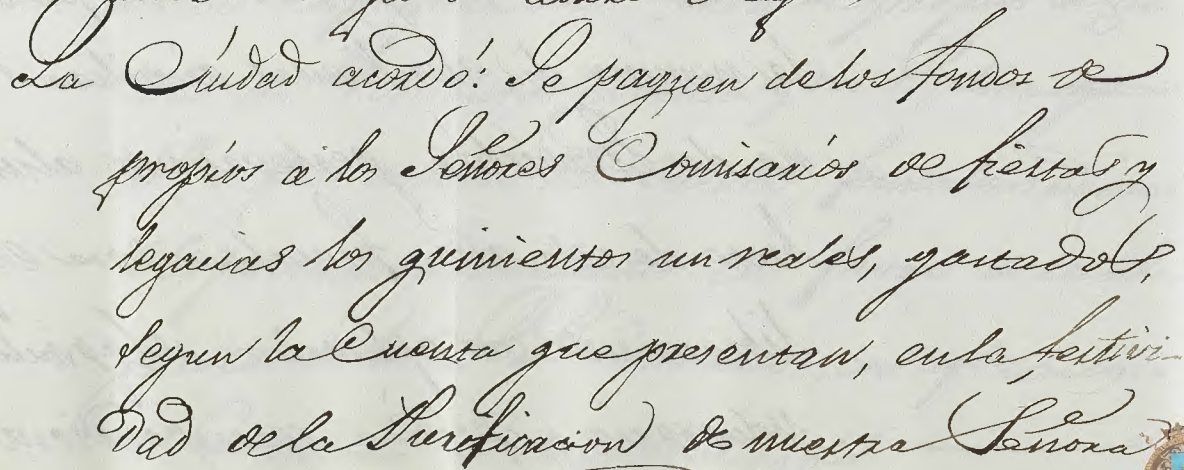 La Ciudad acordó: Se paguen de los fondos de
propios á los Señores Comisarios de fiestas y
legacias los quinientos un reales, gastados,
segun la Cuenta que presentan, en la festivi-
dad de la Purificacion de nuestra Señora